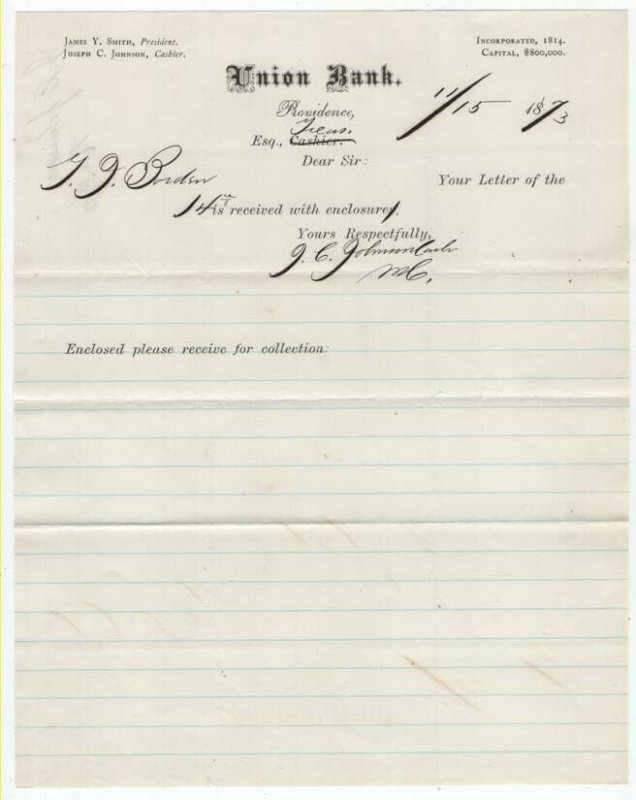 James Y. Smith, President.
Joseph C. Johnson, Cashier.
Incorporated, 1814.
Capital, $800,000.
Union Bank.
Providence, 11/15 1873
Treas.
Esq., Cashier.
Dear Sir:
T. J. Borden
Your Letter of the
14th is received with enclosure.
Yours Respectfully,
J. C. Johnson Cash
Enclosed please receive for collection: